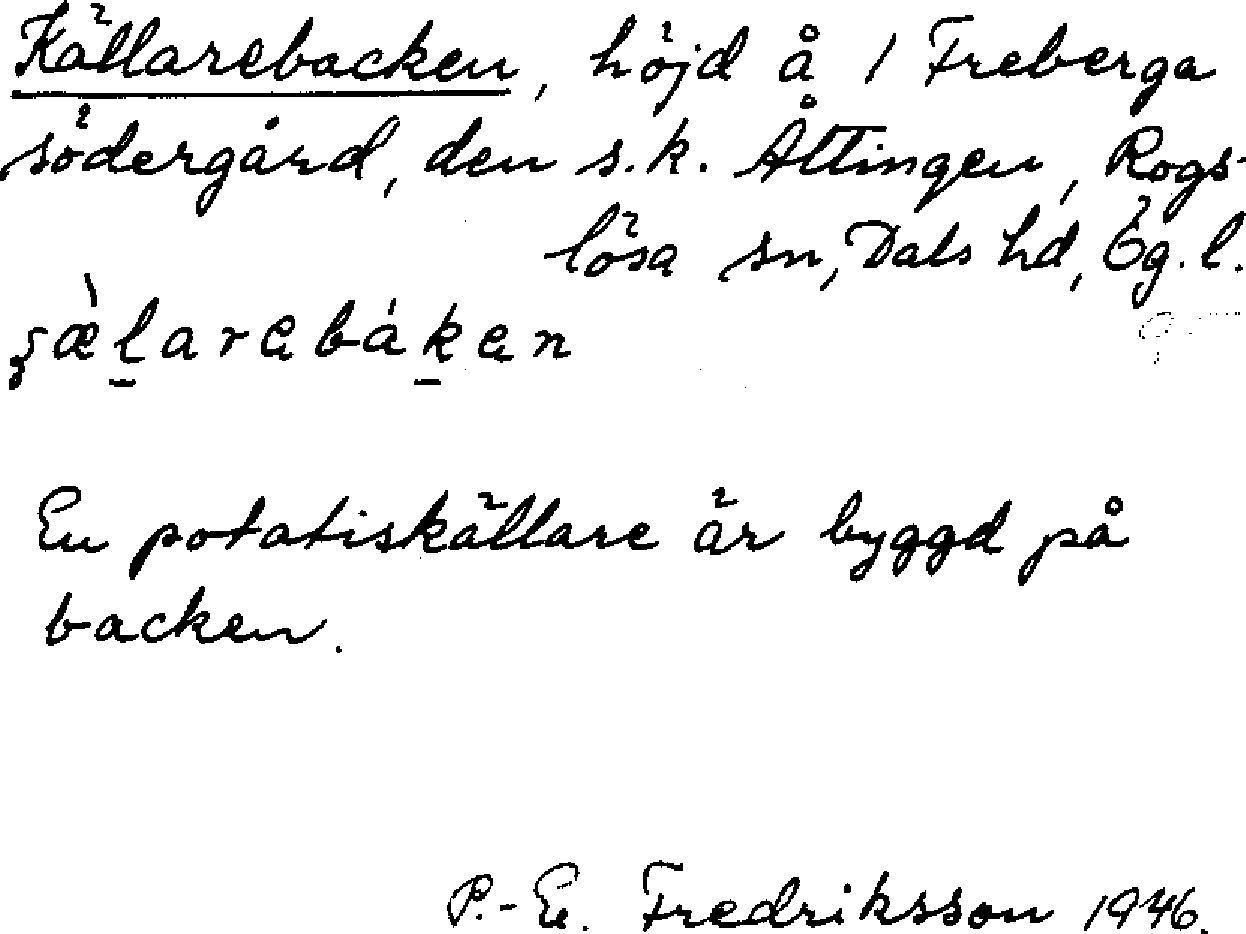 Källarebacken, höjd å 1 Freberga
södergård, den s.k. Åttingen, Rogs-
lösa sn, Dals hd, Ög.l.
En potatiskällare är byggd på
backen.
P.-E. Fredriksson 1946.